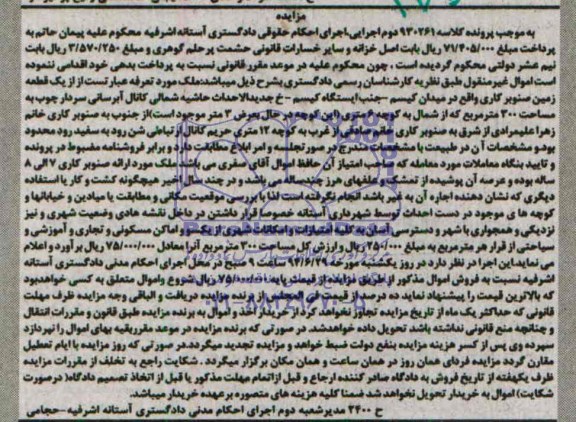 مزایده
به موجب پرونده کلاسه ۹۳۰۲۶۱ دوم اجرایی،اجرای احکام حقوقی دادگستری آستانه اشرفیه محکوم علیه پیمان حاتم به
پرداخت مبلغ ۷۱/۴۰۵/۰۰۰ ریال بابت اصل خزانه و سایر خسارات قانونی حشمت پرحلم گوهری و مبلغ ۳/۵۷۰/۲۵۰ ریال بابت
نیم عشر دولتی محکوم گردیده است . چون محکوم علیه در موعد مقرر قانونی نسبت به پرداخت بدهی خود اقدامی ننموده
است اموال غیرمنقول طبق نظریه کارشناسان رسمی دادگستری بشرح ذیل میباشد:ملک مورد تعرفه عبارتست از از یک قطعه
زمین صنوبر کاری واقع در میدان کیسم -جنب ایستگاه کیسم -خ جدیدالاحداث حاشیه شمالی کانال آبرسانی سردار چوب به
مساحت ۳۰۰ مترمربع که از شمال به کوچه ۶ متری (این کوچه در حال بعرض ۳ متر موجود است)از جنوب به صنوبر کاری خانم
زهرا علیمرادی از شرق به صنوبر کاری خانم صادقی از غرب به کوچه ۱۲ متری حریم کانال ارتباطی شن رود به سفید رود محدود
بود.و مشخصات آن در طبیعت با مشخصات مندرج در صورتجلسه و امر ابلاغ مطابقت دارد و برابر فروشنامه مضبوط در پرونده
و تایید بنگاه معاملات مورد معامله که صاحب امتیاز آن حافظ اموال آقای صفری می باشد ملک مورد ارائه صنوبر کاری ۷ الی ۸
ساله بوده و عرصه آن پوشیده از تمشک و علفهای هرز چندساله می باشد و در چند سال اخیر هیچگونه کشت و کار یا استفاده
دیگری که نشان دهنده اجاره آن به غیر باشد انجام نگرفته است لذا با بررسی موقعیت مکانی و مطابقت با میادین و خیابانها و
کوچه ها ی موجود در دست احداث توسط شهرداری آستانه خصوصا قرار داشتن در داخل نقشه هادی وضعیت شهری و نیز
نزدیکی و همجواری با شهر و دسترسی آسان به کلیه امتیازات و امکانات شهری از یکسو و اماکن مسکونی و تجاری و آموزشی و
سیاحتی از قرار هر مترمربع به مبلغ ۲۵۰/۰۰۰ ریال و ارزش کل مساحت ۳۰۰ مترمربع آنرا معادل ۷۵/۰۰۰/۰۰۰ ریال بر آورد و اعلام
می نماید.این اجرا در نظر دارد در روز یکشنبه مورخ ۹۴/۶/۲۹ ساعت ۱۰ صبح در محل اجرای احکام مدنی دادگستری آستانه
اشرفیه نسبت به فروش اموال مذکور از طریق مزایده از قیمت پایه ۷۵/۰۰۰/۰۰۰ ریال شروع واموال متعلق به کسی خواهدبود
که بالاترین قیمت را پیشنهاد نماید ده درصد از قیمت فی المجلس از برنده مزایده دریافت و الباقی وجه مزایده ظرف مهلت
قانونی که حداکثر یک ماه از تاریخ مزایده تجاوز نخواهد کرد از خریدار اخذ و اموال به برنده مزایده طبق قانون و مقررات انتقال
و چنانچه منع قانونی نداشته باشد تحویل داده خواهدشد. در صورتی که برنده مزایده در موعد مقرربقیه بهای اموال را نپردازد
سپرده وی پس از کسر هزینه مزایده بنفع دولت ضبط خواهد و مزایده تجدید میگردد.در صورتی که روز مزایده با ایام تعطیل
مقارن گردد مزایده فردای همان روز در همان ساعت و همان مکان برگزار میگردد . شکایت راجع به تخلف از مقررات مزایده
ظرف یکهفته از تاریخ فروش به دادگاه صادر کننده ارجاع و قبل ازاتمام مهلت مذکور یا قبل از اتخاذ تصمیم دادگاه( درصورت
شکایت) اموال به خریدار تحویل نخواهد شد.ضمنا کلیه هزینه های متصوره بر عهده خریدار میباشد.
ح ۲۴۰۰ مدیرشعبه دوم اجرای احکام مدنی دادگستری آستانه اشرفیه -حجامی